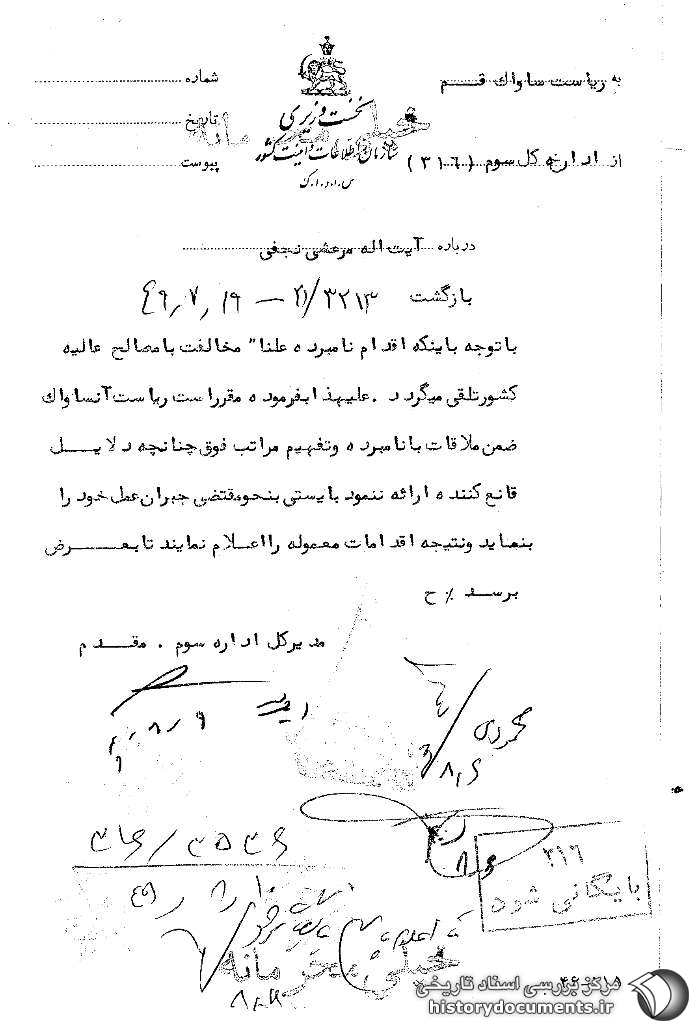 به ریاست ساواک قـــم
شماره
نخست وزیری
از اداره کل سوم (۳۱۶)
تاریخ
خیلی محرمانه
سازمان اطلاعات و امنیت کشور
س.ا.و.ا.ک
پیوست
درباره آیت اله مرعشی نجفی
بازگشت ۲۱/۳۲۱۳ — ۴۹٫۷٫۱۹
با توجه باینکه اقدام نامبرده علنا" مخالفت با مصالح عالیه
کشور تلقی میگردد . علیهذا بفرموده مقرر است ریاست آنساواک
ضمن ملاقات با نامبرده و تفهیم مراتب فوق چنانچه دلایـــل
قانع کننده ارائه ننمود بایستی بنحو مقتضی جبران عمل خود را
بنماید و نتیجه اقدامات معموله را اعلام نمایند تا بعـــرض
برسد ٪ ح
مدیرکل اداره سوم . مقـــدم
محمودی
۸٫۶
۳۱۶
بایگانی شود
۳۱۶/۳۵۳۶
۴۹٫۸٫۱۰
خیلی محرمانه
مرکز بررسی اسناد تاریخی
historydocuments.ir